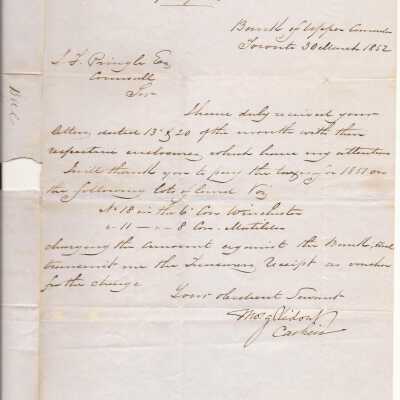 Bank of Upper Canada
Toronto 30 March 1852
J. F. Pringle Esq
Cornwall
Sir
I have duly received your
letters dated 13 & 20 of the month with their
respective enclosures, which have my attention
I will thank you to pay the taxes for 1851 on
the following lots of land Viz
No 18 in the 6 Con Winchester
" 11 — " — 8 Con. Matilda
charging the amount against the Bank, and
transmit me the Treasurers Receipt as voucher
for the charge
Your obedient Servant
Cashier